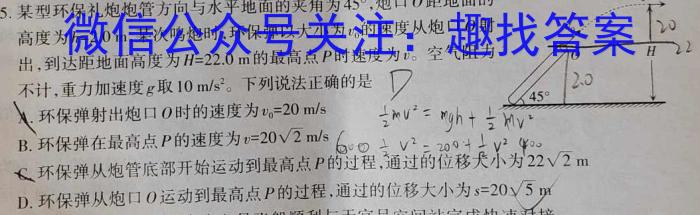 5. 某型环保礼炮炮管方向与水平地面的夹角为45°,炮口O距地面的
高度为
微信公众号关注：趣找答案
出,到达距地面高度为H=22.0 m的最高点P时速度为v。空气阻力
不计,重力加速度g取10 m/s²。下列说法正确的是 D
A. 环保弹射出炮口O时的速度为v₀=20 m/s
B. 环保弹在最高点P的速度为v=20√2 m/s
C. 环保弹从炮管底部开始运动到最高点P的过程,通过的位移大小为22√2 m
D. 环保弹从炮口O运动到最高点P的过程,通过的位移大小为s=20√5 m
½mv² = mgh + ½mv²
20
H
22
2.0
45°